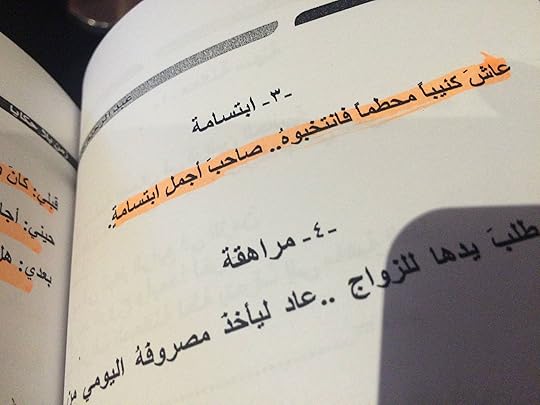 -٣- ابتسامة
عاشَ كئيباً محطماً فانتخبوهُ.. صاحبَ أجملِ ابتسامةٍ.
-٤- مراهقة
طلبَ يدها للزواج ..عاد ليأخذَ مصروفهُ اليومي من
قبلي: كانَ
حيني: أجا
بعدي: هل